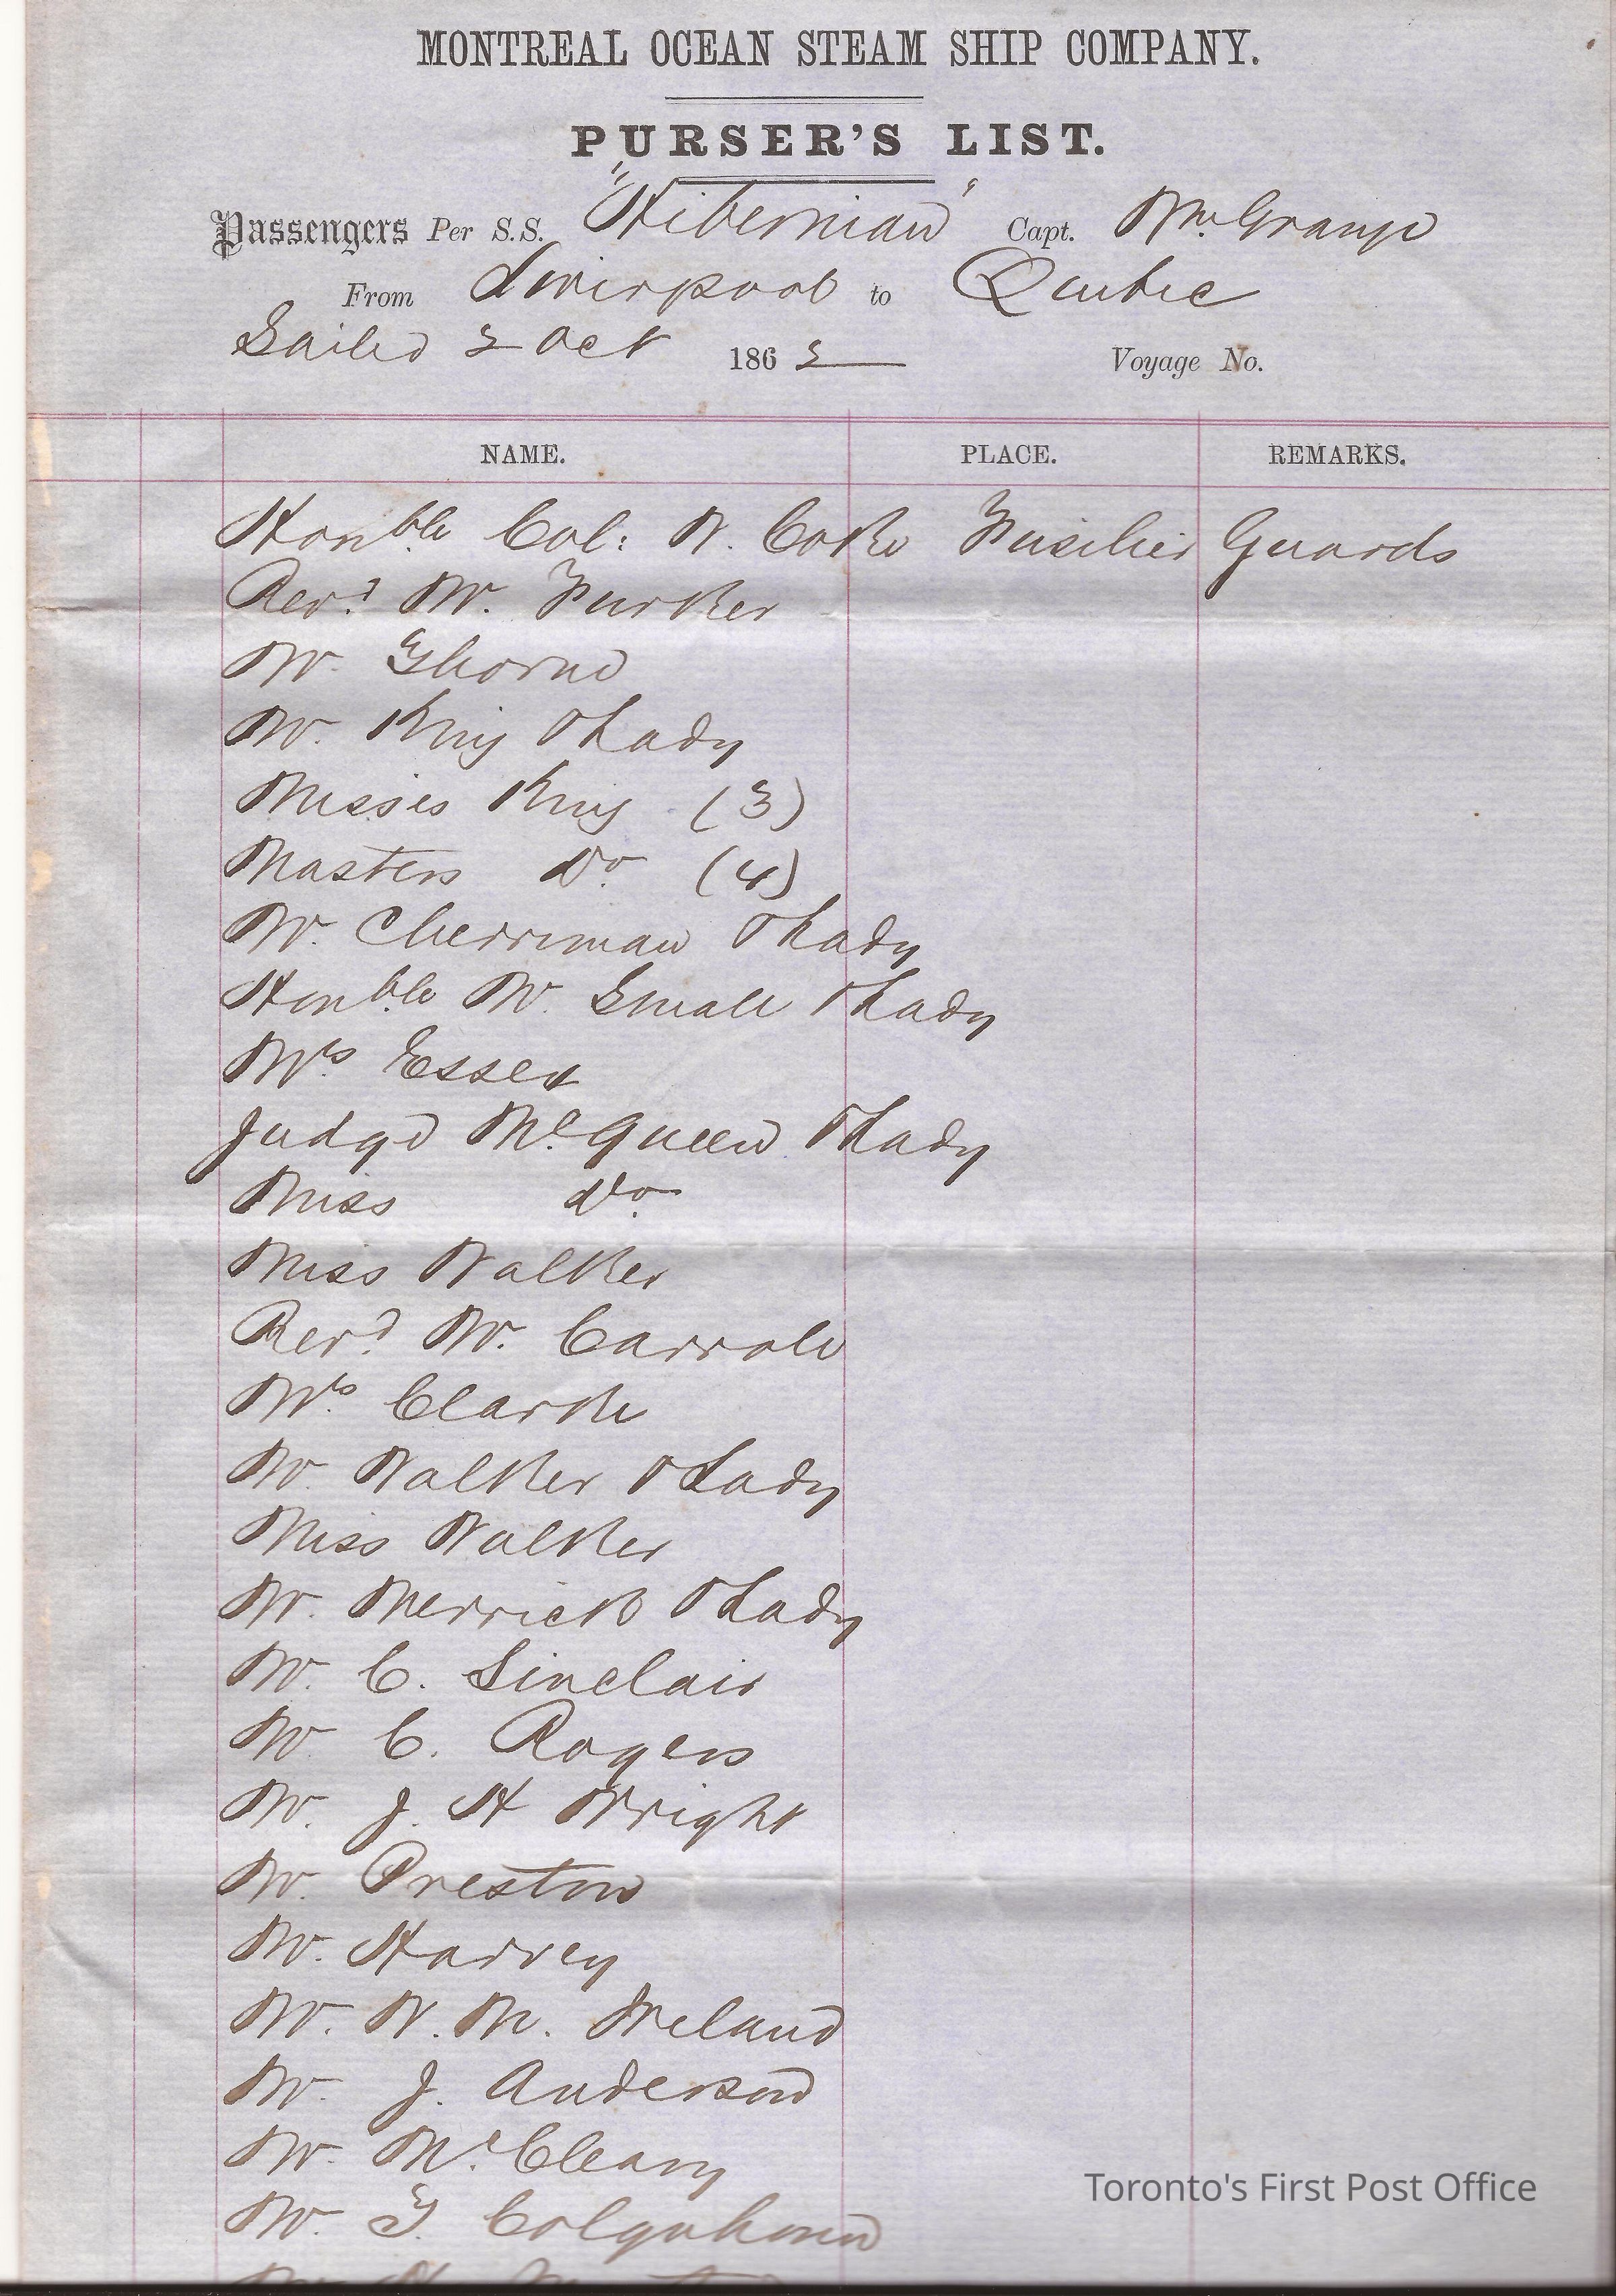 MONTREAL OCEAN STEAM SHIP COMPANY.
PURSER'S LIST.
Passengers Per S.S. "Hibernian" Capt. Wm. Grange
From Liverpool to Quebec
Sailed 2 Oct 1862 Voyage No.
NAME. PLACE. REMARKS.
Honble Col: W. Coke Fusilier Guards
Revd. Mr. Furker
Mr. Thorne
Mr. King & Lady
Misses King (3)
Masters Do. (4)
Mr. Cherriman & Lady
Honble Mr. Small & Lady
Mrs. Essex
Judge McQueen & Lady
Miss Do.
Miss Walker
Revd. Mr. Carroll
Mrs. Clarke
Mr. Walker & Lady
Miss Walker
Mr. Merrick & Lady
Mr. C. Sinclair
Mr. C. Rogers
Mr. J. H Wright
Mr. Preston
Mr. Harvey
Mr. W. M. Ireland
Mr. J. Anderson
Mr. McCleary
Mr. T. Colquhoun
Toronto's First Post Office